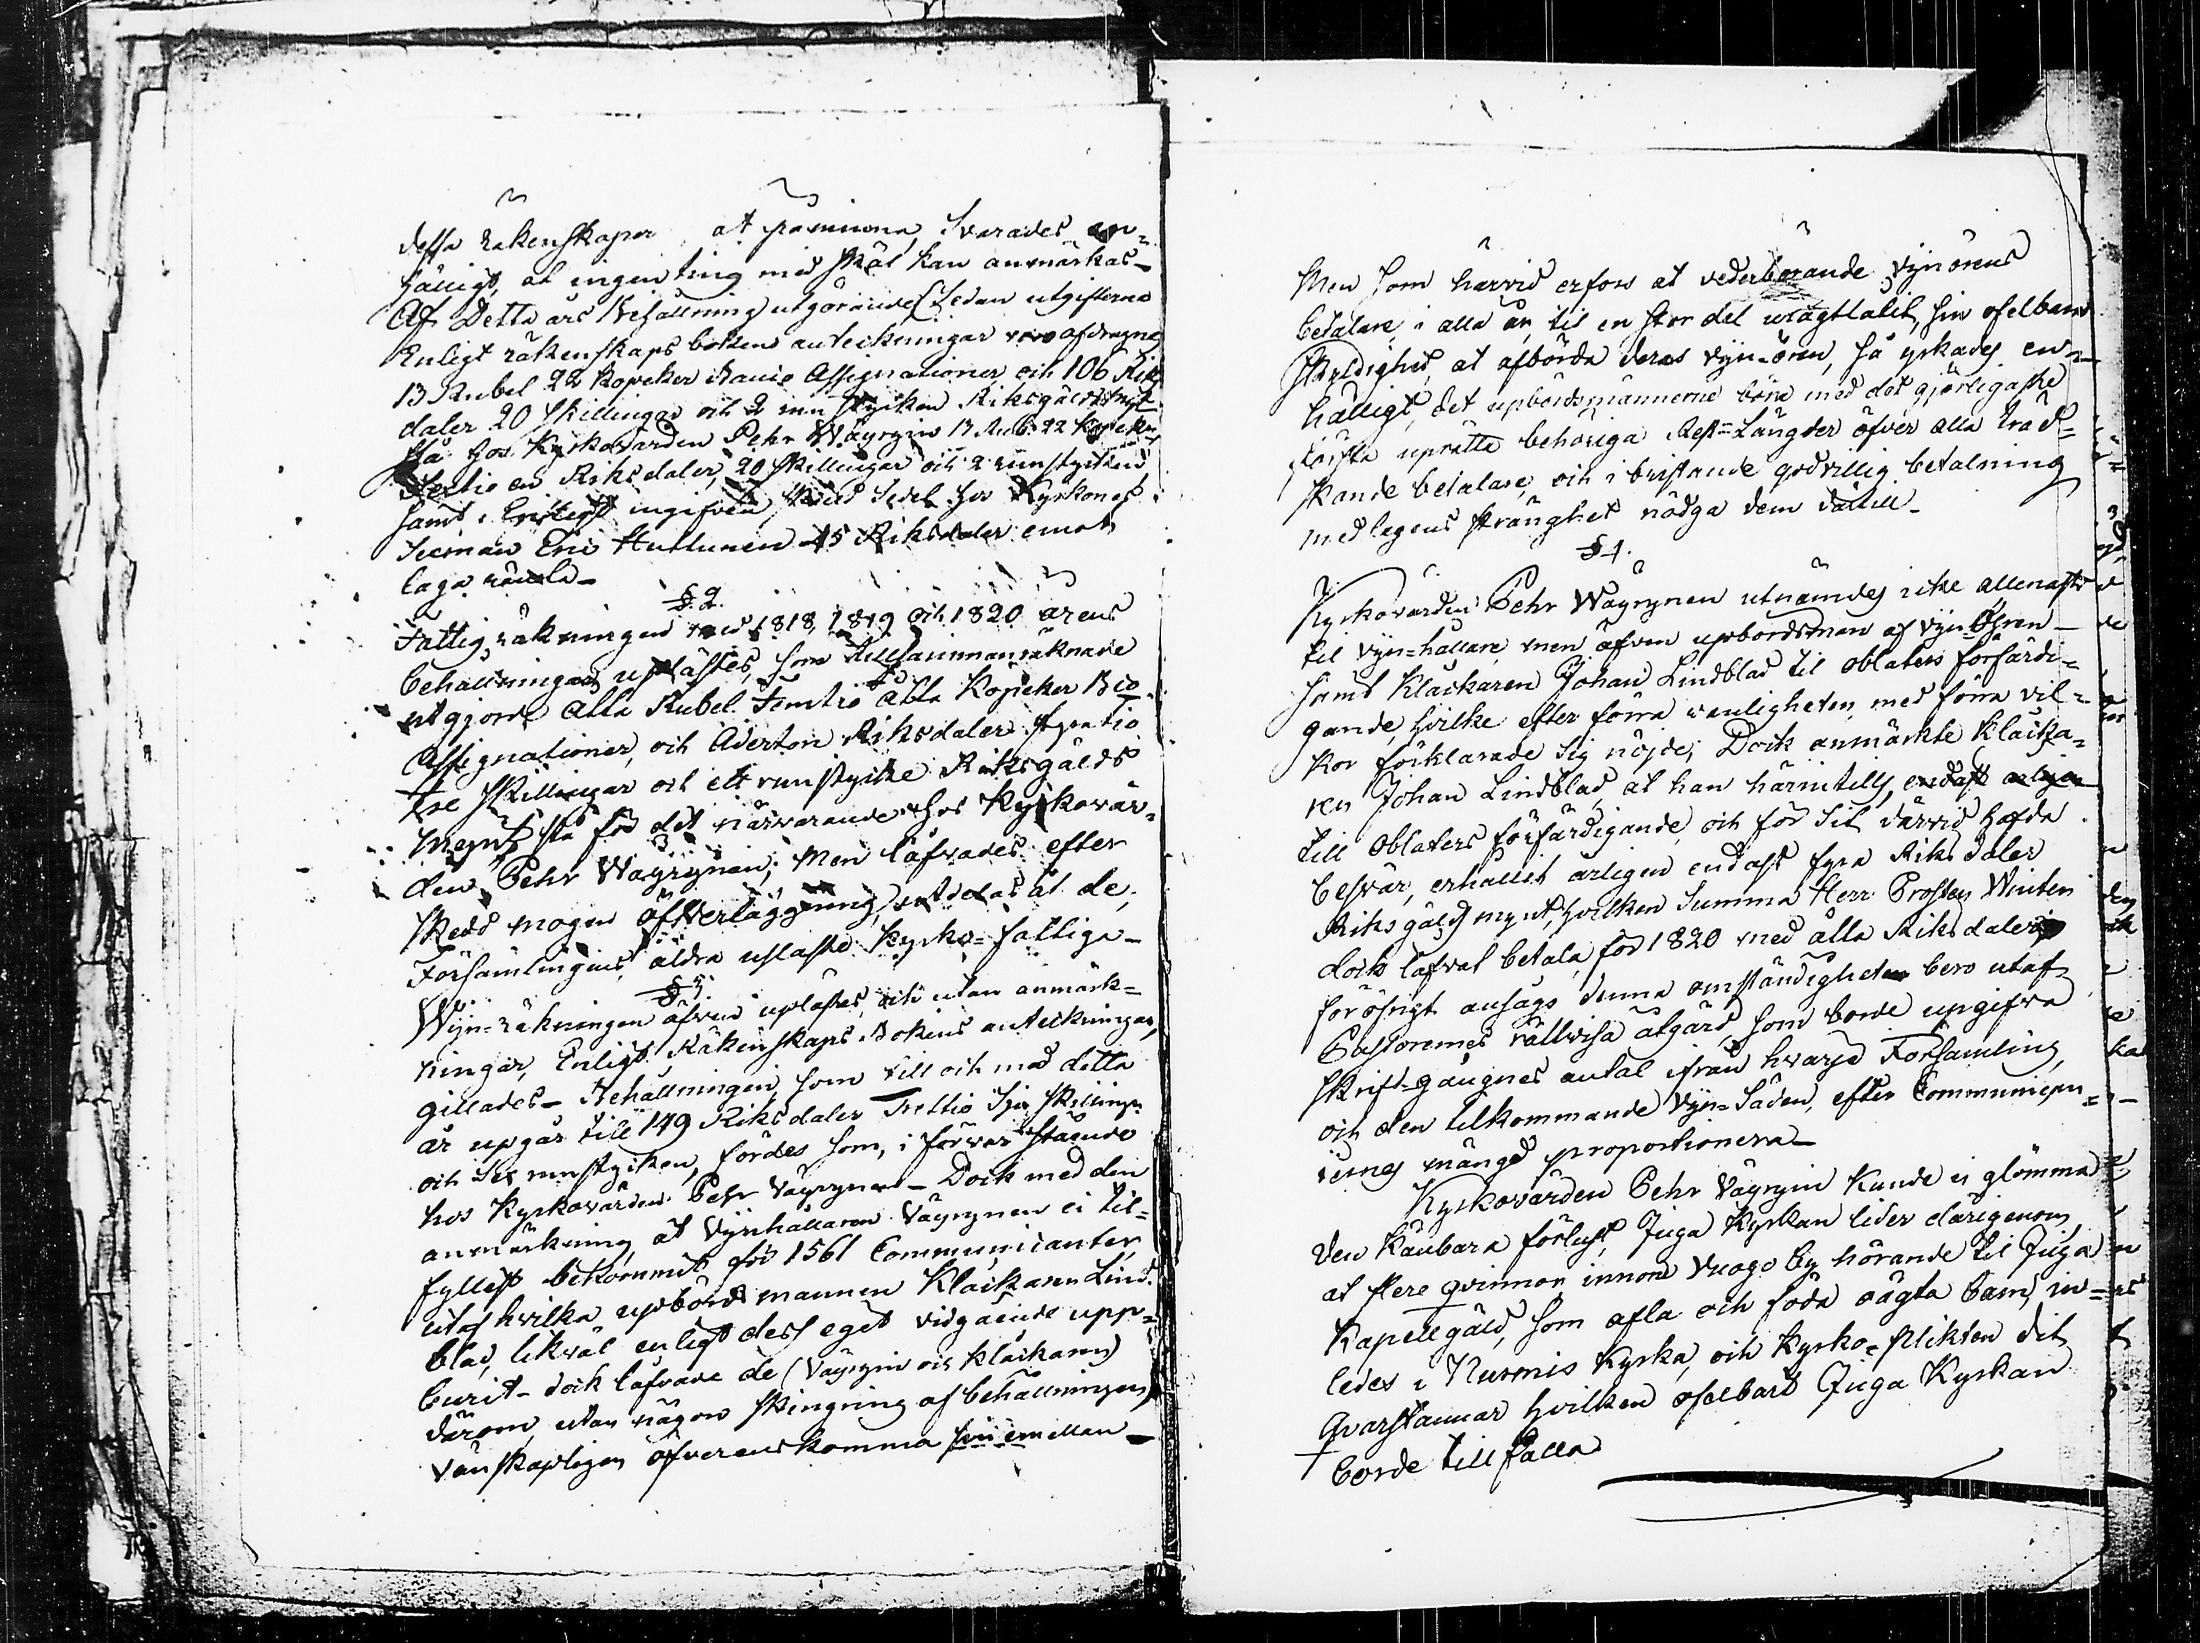 dessa räkenskaper at påminna, svarades en-
hälligt, at ingen ting med skäl kan anmärkas_
Af Detta års Behållning utgörande (sedan utgifterna
Enligt räkenskaps bokens anteckningar voro afdragne
13 Rubel 22 Kopeker Banco Assignationer och 106 Riks
daler 20 skillingar och 2 runstycken Riksgälds mynt
stå hos Kyrkovärden Pehr Wäyrynen 13 Rub. 22 Kopeker
Sextio en Riksdaler, 20 skillingar och 2 runstycken
samt i ingifven, sedel hos Kyrkones
Sexman Eric Huttunen 45 Riksdaler emot
laga ränta_
§. 2.
Fattig räkningen med 1818, 1819 och 1820 årens
behållningar uplästes, som tillsammanräknade
utgjorde åtta Rubel Femtio åtta Kopeker Bco
Assignationer, och Aderton Riksdaler fyratio
tre skillingar och ett runstycke Riksgälds
Mynt stå för det närvarande hos Kyrkovär-
den Pehr Wäyrynen; Men låfvades efter
skedd mogen öfverläggning, utdelas åt de,
Församlingens äldra uslaste Kyrko-fattiga_
§ 3
Wijn-räkningen äfven uplästes, och utan anmärk-
ningar, Enligt Räkenskaps Bokens anteckningar,
gillades_ Behållningen, som till och med detta
år upgår till 149 Riksdaler Trettio Sju skillingar
och Sex runstycken, fördes som, i förvar stående
hos Kyrkovärden Pehr Väyrynen_ Dock med den
anmärkning at Vijnhållaren Väyrynen ei til-
fyllest bekommit för 1561 Communicanter,
utaf hvilka upbördsmannen Klåckaren Lind-
blad, likväl enligt dess eget vidgående upp-
burit_ dock låfvade de (Väyrynen och Klåckaren)
därom, utan någon skingring af behållningen,
vänskapligen öfverenskomma sins emellan_
Men som härvid erfors at vederbörande Vijnörens
betalare i alla år, til en stor del uragtlåtit, sin ofelbara
skyldighet, at afbörda deras vijn-ören, så yrkades en-
hälligt, det upbördsmännerne böra med det görligaste
första uprätta behöriga Rest-Längder öfver alla tred-
skande betalare, och i bristande godvillig betalning
med lagens stränghet nödga dem därtill_
§ 4.
Kyrkovärden Pehr Wäyrynen utnämdes icke allenast
til vijn-hållare, men äfven upbördsman af vijn-ören_
samt Klåckaren Johan Lindblad til oblaters förfärdi-
gande, hvilke efter förra vanligheten, med förra vil-
kor förklarade sig nöjde; Dock anmärkte klåcka-
ren Johan Lindblad, at han härintills, endast årligen
till Oblaters förfärdigande och för sit därvid hafda
besvär, erhållit årligen endast fyra Riksdaler
Riksgälds mynt, hvilken Summa Herr Prosten Winter
dock låfvat betala, för 1820 med åtta Riksdaler
föröfrigt ansågs denna omständigheten bero utaf
Pastorernes rättvisa åtgärd, som borde upgifva
skrift-gångnes antal ifrån hvarje Församling,
och den tilkommande Vijn-Säden, efter Communican-
ternes mängd proportionera_
Kyrkovärden Pehr Väyrynen kunde ei glömma
den kännbara förlust, Juga Kyrkan lider därigenom
at flere qvinnor innom Vuogo by hörande til Juga
Kapellgäld, som afla och föda oägta barn, in-
ledes i Nurmis Kyrka, och Kyrko-plikten dit
qvarstannar hvilken ofelbart Juga Kyrkan
borde tillfalla